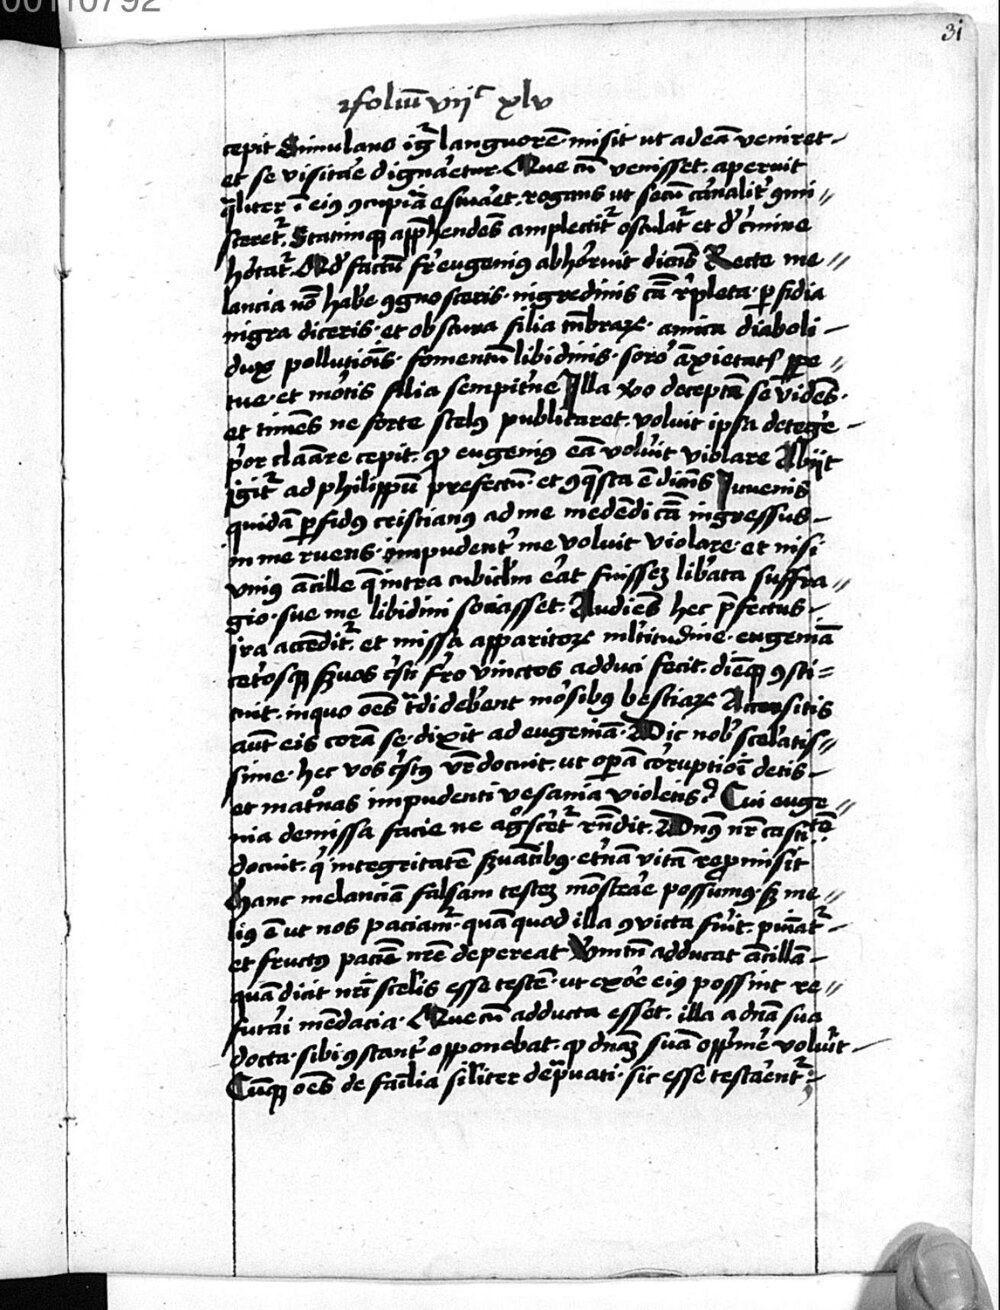 00110792
31
foliū vijc xlv
cepit Simulans igr̄ languorē misit ut ad eā veniret
et se visitare dignaretur. Que cū venisset. aperuit
qualiter ī eius ɔcupiā estuaret. rogans ut secū carnaliter ɔmi//
sceretur. Statimqȝ apprehendēs amplectitur osculatur et d' crimine
hortatur. Qd' factū fr̄ eugenius abhorruit dicēs Recte me//
lancia nō habes ɔgnosceris. nigredinis eā repleta. perfidia
nigra diceris. et obscura filia tenebrarum. amica diaboli
dux pollutiōis. fomentū libidinis. soror āxietatis perpe//
tue. et mortis filia sempiterne Illa vero deceptā se vidēs.
et timēs ne forte scelus publicaret. voluit ipsa detegere
prior clamare cepit. qȝ eugenius eā voluit violare Abiit
igitur ad philippū prefectū. et ɔquesta ē dicēs Iuvenis
quidā perfidus cristianus ad me medendi cā ingressus
in me ruens. impudenter me voluit violare. et nisi
unius ancille que intra cubiculum erat fuissem liberata suffra//
gio. sue me libidini sociasset. Audiēs hec prefectus
ira accēditur. et missa apparitorum multitudine. eugeniā
ceterosqȝ servos cristi ferro vinctos adduci fecit. diēqȝ ɔsti=
tuit. in quo oēs tradi deberent morsibus bestiarum Accersitis
autem eis corā se. dixit ad eugeniā. Dic nobis sceleratis//
sime. hec vos cristus vester docuit. ut operā corruptioni detis
et matronas impudenti vesania violetis? Cui euge//
nia demissa facie ne agnosceretur respondit. Dn̄us nr̄ castitatē
docuit. qui integritatē servantibus. eternā vitā repromisit
hanc melanciā falsam testem mōstrare possumus. sȝ me//
lius ē ut nos paciamur. quā quod illa ɔvicta fuerit. puniatur
et fructus paciēcie nr̄e depereat Verumtn̄ adducat ancillā
quā dicit nr̄i sceleris esse testē. ut ex ore eius possint re//
futari mēdacia. Que cū adducta esset. illa a dn̄a sua
docta. sibi ɔstanter opponebat. qȝ dn̄aȝ suā opprimere voluerit
Cūqȝ oēs de familia similiter depravati. sic esse testarentur